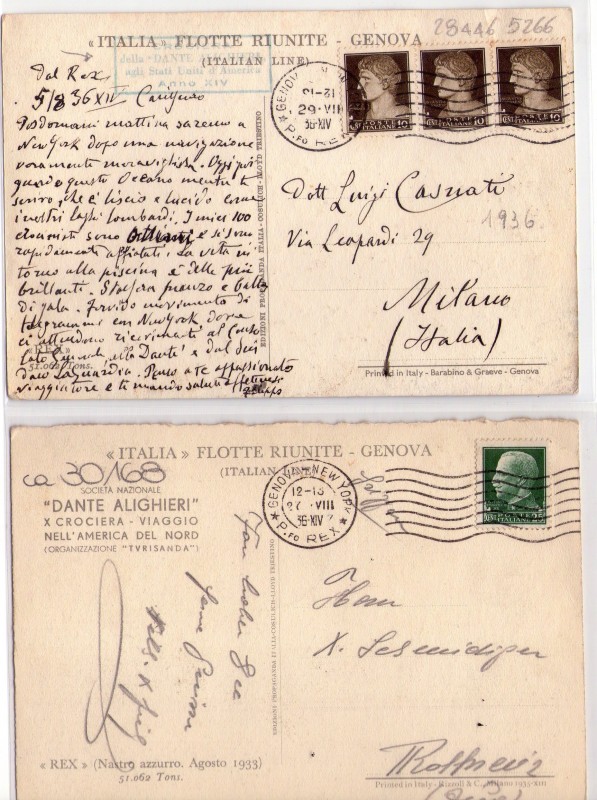 28446 5266
« ITALIA » FLOTTE RIUNITE - GENOVA
(ITALIAN LINE)
della "DANTE
agli Stati Uniti d'America
XIV
Dal Rex
5/8 36 XIV
Posdomani mattina saremo a
New York dopo una navigazione
veramente meravigliosa. Oggi poi
questo Oceano mentre ti
scrivo, che è liscio e lucido come
i nostri laghi lombardi. I miei 100
sono e si sono
rapidamente affiatati. La vita in
torno alla piscina è delle più
brillanti. Stasera pranzo e ballo
di gala. Fervido movimento di
telegrammi con New York, dove
ci attendono ricevimenti al Conso
lato Generale, alla "Dante" e dal Sin
daco La Guardia. Penso a te appassionato
viaggiatore e ti mando saluti affettuosi
« REX »
51.062 Tons.
EDIZIONI PROPAGANDA ITALIA - COSULICH - LLOYD TRIESTINO
GENOVA
21-31
29 · VII
36-XIV
P.fo REX
POSTE ITALIANE 10
POSTE ITALIANE 10
POSTE ITALIANE 10
Dott Luigi Casnati
1936.
Via Leopardi 29
Milano
(Italia)
Printed in Italy - Barabino & Graeve - Genova
« ITALIA » FLOTTE RIUNITE - GENOVA
(ITALIAN LINE)
ca 30/168
SOCIETÀ NAZIONALE
"DANTE ALIGHIERI"
X CROCIERA - VIAGGIO
NELL'AMERICA DEL NORD
(ORGANIZZAZIONE "TVRISANDA")
GENOVA-NEW YORK
12-13
27 · VIII
36-XIV
P.fo REX
POSTE ITALIANE 25
Von hoher See
EDIZIONI PROPAGANDA ITALIA-COSULICH-LLOYD TRIESTINO
Herrn
X.
« REX » (Nastro azzurro. Agosto 1933)
51.062 Tons.
Printed in Italy - Rizzoli & C. Milano 1935-XIII